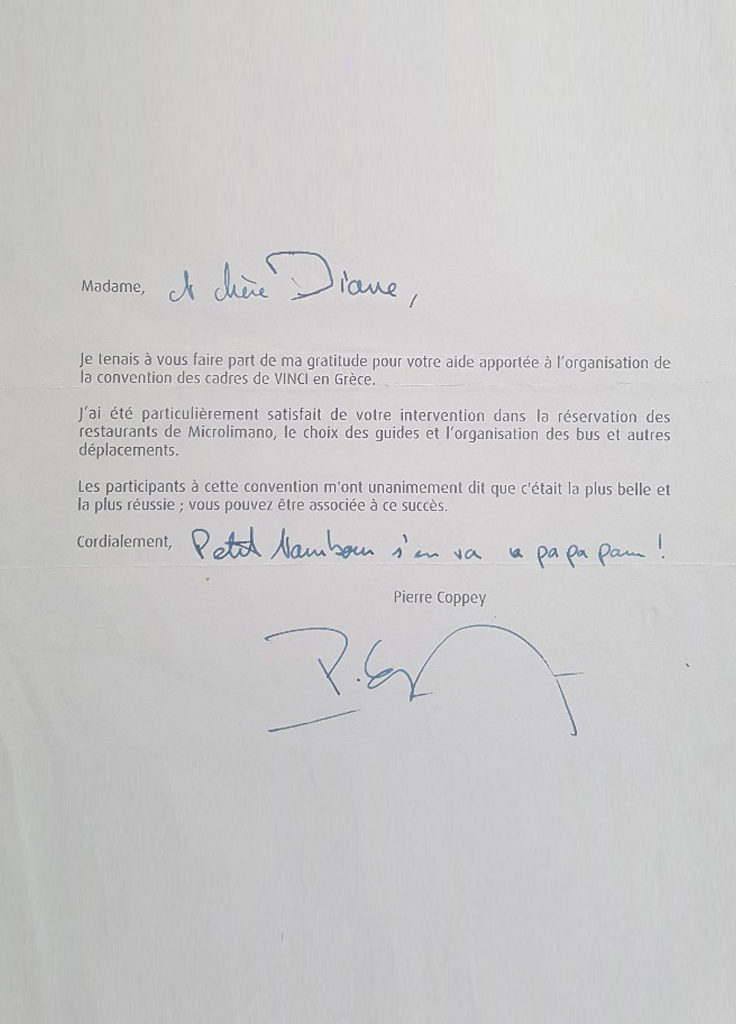 Madame, et chère Diane,
Je tenais à vous faire part de ma gratitude pour votre aide apportée à l'organisation de
la convention des cadres de VINCI en Grèce.
J'ai été particulièrement satisfait de votre intervention dans la réservation des
restaurants de Microlimano, le choix des guides et l'organisation des bus et autres
déplacements.
Les participants à cette convention m'ont unanimement dit que c'était la plus belle et
la plus réussie ; vous pouvez être associée à ce succès.
Cordialement, Petit s'en va pa pa pam !
Pierre Coppey